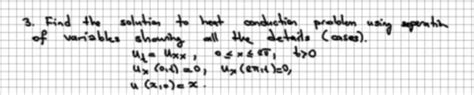 3. Find the solution to heat conduction problem using separation
of variables showing all the details (cases).
u_t = u_xx, 0 ≤ x ≤ 2π, t>0
u_x (0,t) = 0, u_x (2π,t)=0,
u (x,0) = x.